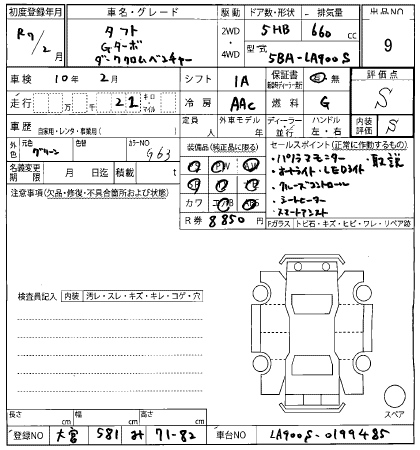 初度登録年月 車名・グレード 駆動 ドア数・形状 排気量 出品NO
R7/2月 タフト 2WD 5HB 660cc 9
Gターボ ・ 型式
ダーククロムベンチャー 4WD 5BA-LA900S
車検 10年 2月 シフト IA 保証書 有 無 評価点
走行 万 千 21 キロ・マイル 冷房 AAC 燃料 G S
車歴 自家用・レンタ・事業用( ) 定員 人 外車モデル 年 ディーラー・並行 ハンドル 左・右 内装評価 S
外色 元色 グリーン 色替 カラーNO G63 装備品(純正品に限る) セールスポイント(正常に作動するもの)
・パノラマモニター ・取説
名義変更期限 月 日迄 積載 t ・オートライト・LEDライト
注意事項(欠品・修復・不具合箇所および状態) ・クルーズコントロール
・シートヒーター
カワ エアB ABS ・スマートアシスト
R券 8850円 Fガラス トビ石・キズ・ヒビ・ワレ・リペア跡
検査員記入 内装 汚レ・スレ・キズ・キレ・コゲ・穴
長さ cm 幅 cm 高さ cm
登録NO 大宮 581 み 71-82 車台NO LA900S-0199485